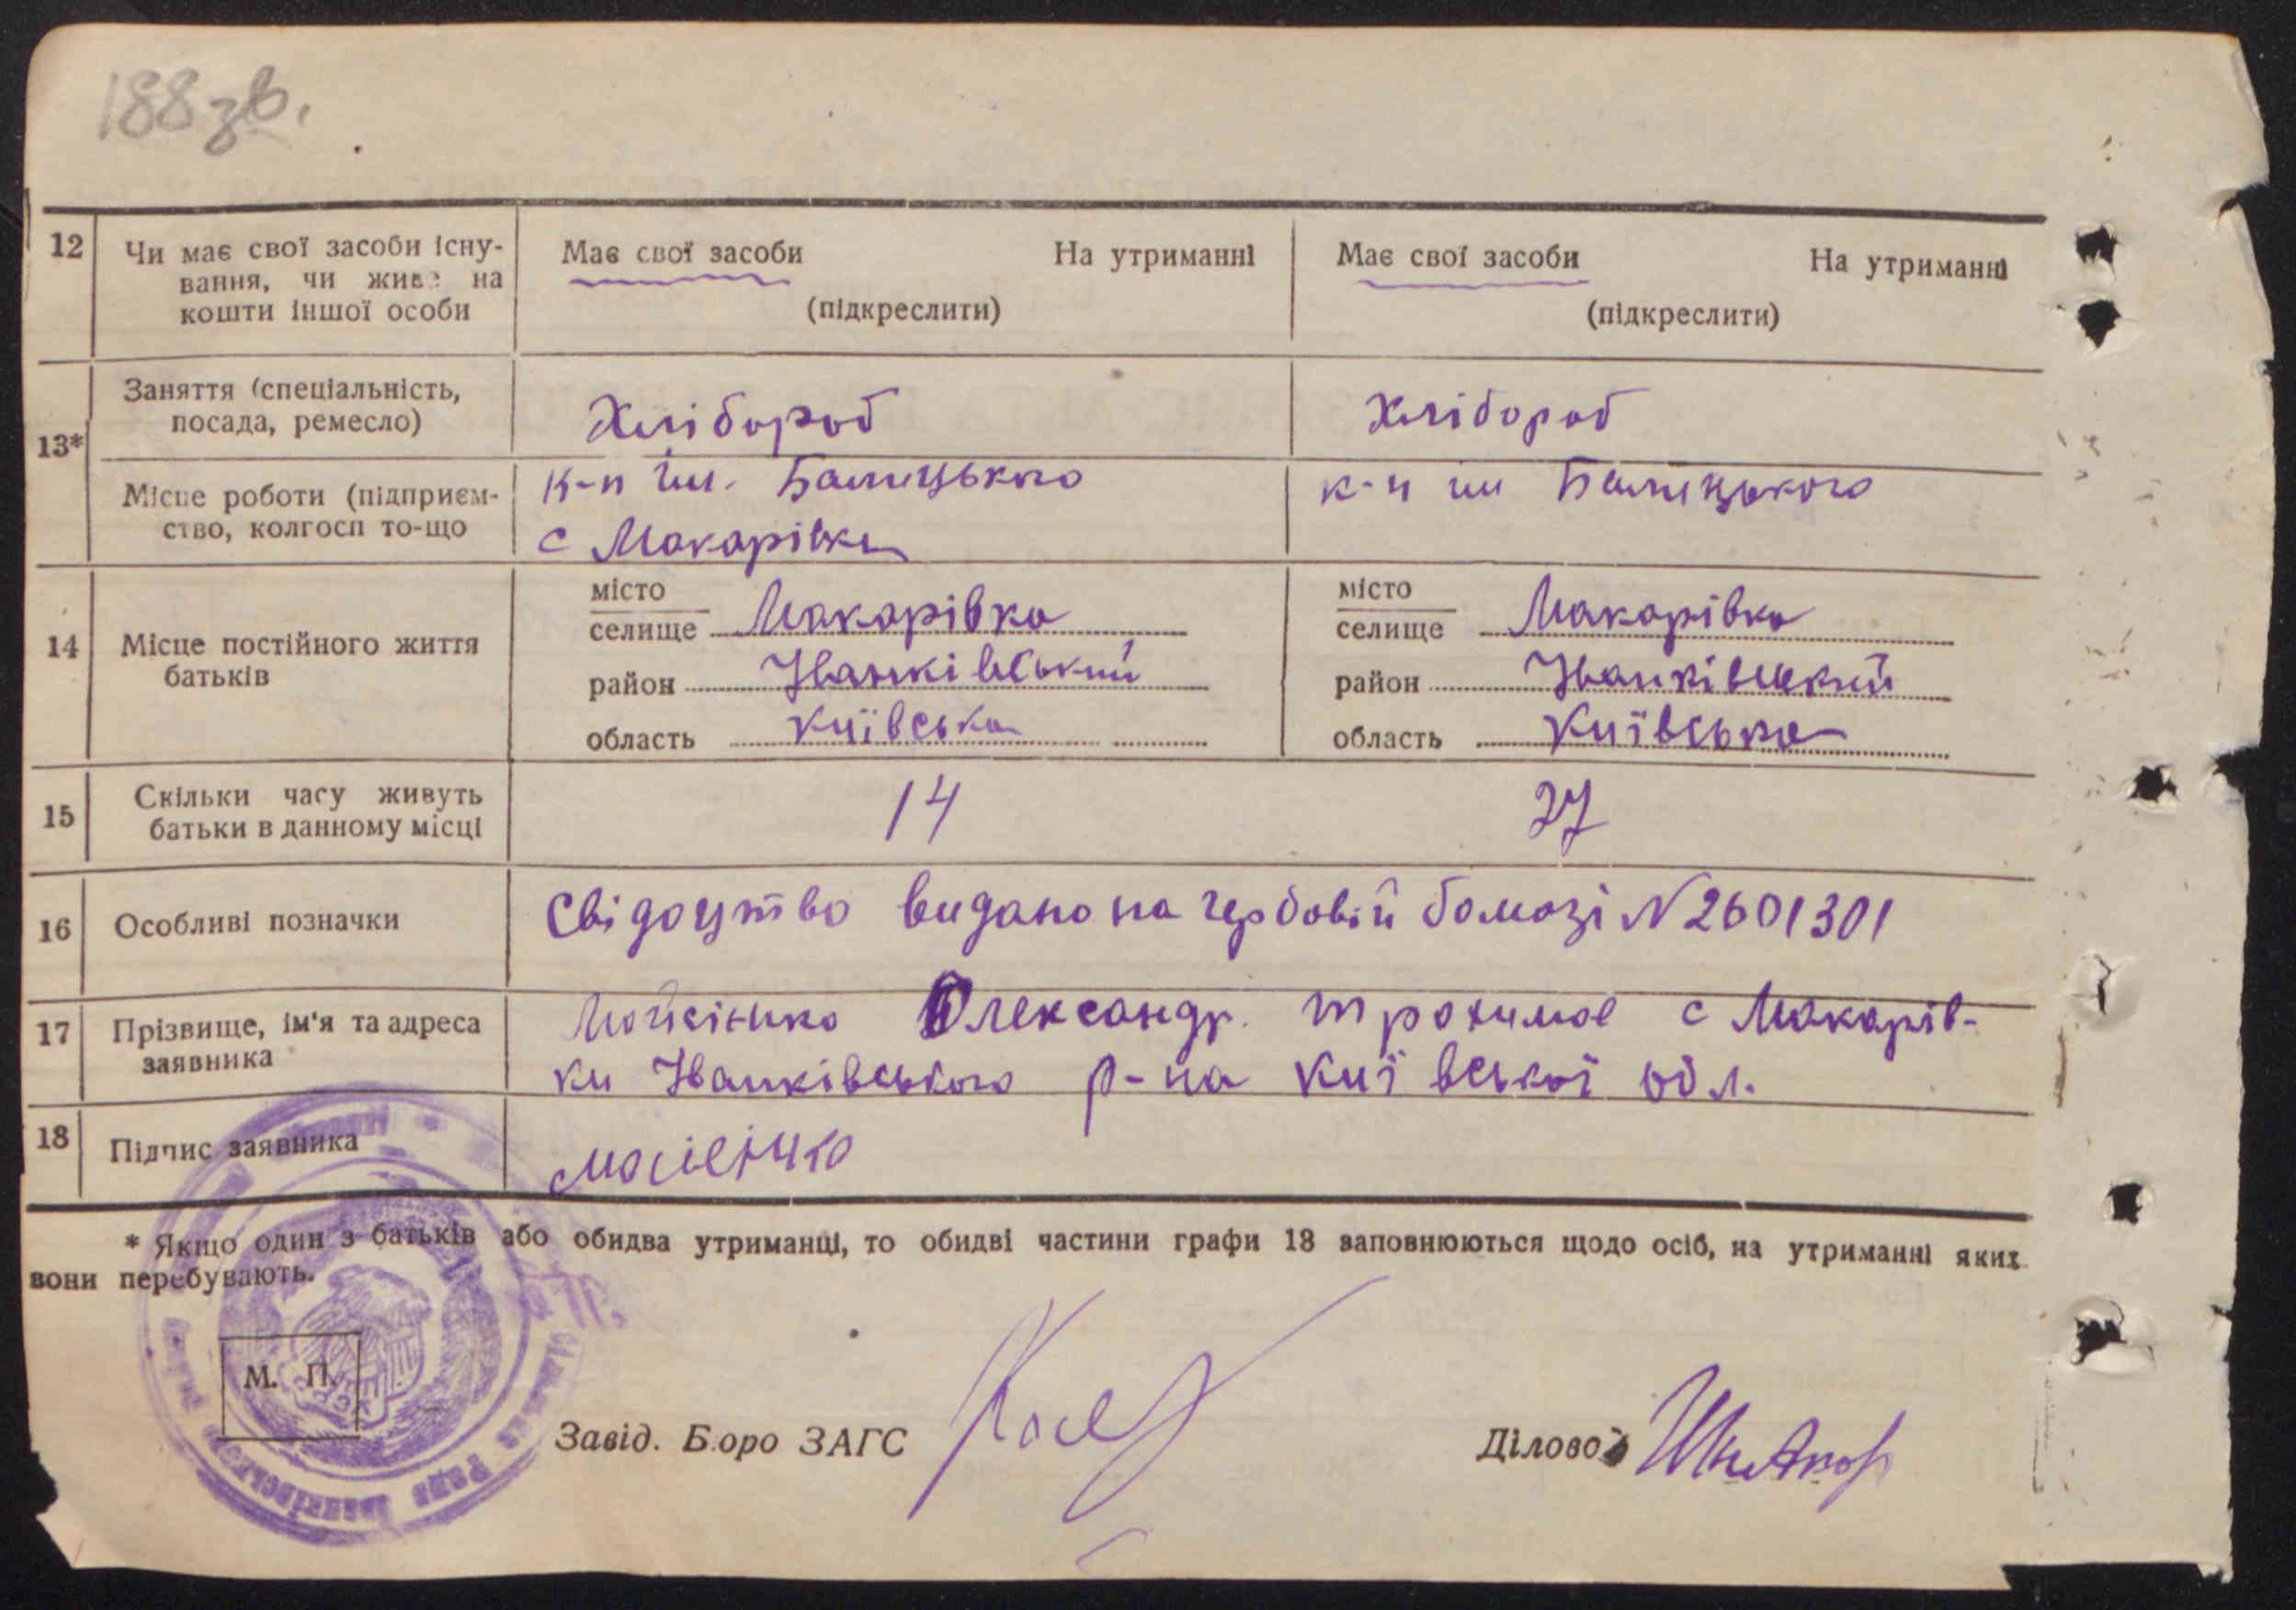 188 зв.
12 Чи має свої засоби існу- Має свої засоби На утриманні Має свої засоби На утриманні
вання, чи живе на
кошти іншої особи (підкреслити) (підкреслити)
Заняття (спеціальність, Хлібороб Хлібороб
посада, ремесло)
13*
Місце роботи (підприєм- к-п ім. Балицького к-п ім Балицького
ство, колгосп то-що с Макарівки
місто місто
14 Місце постійного життя селище Макарівка селище Макарівка
батьків район Іванківський район Іванківський
область Київська область Київська
15 Скільки часу живуть 14 27
батьки в данному місці
16 Особливі позначки Свідоцтво видано на гербовій бомазі N 2601301
17 Прізвище, ім'я та адреса Мойсінко Олександр. Трохимов с Макарів-
заявника ки Іванківського р-на Київської обл.
18 Підпис заявника
* Якщо один з батьків або обидва утриманці, то обидві частини графи 13 заповнюються щодо осіб, на утриманні яких
вони перебувають.
М. П.
Завід. Бюро ЗАГС Діловод